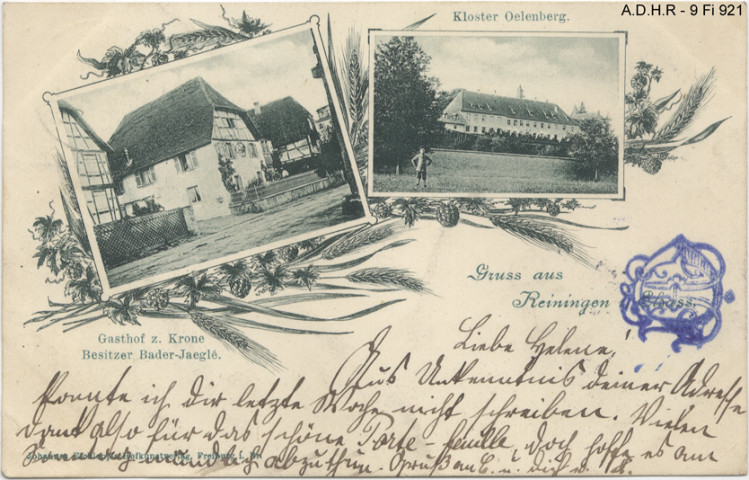 A.D.H.R - 9 Fi 921
Kloster Oelenberg.
Gruss aus
Reiningen i. Elsass.
Gasthof z. Krone
Besitzer Bader-Jaeglé.
Liebe Helene,
Aus Unkenntnis deiner Adresse
konnte ich dir letzte Woche nicht schreiben. Vielen
Dank also für das schöne Porte-feuille, doch hoffe es am
mündlich abzuthun. Gruß an
Freiburg i. Br.